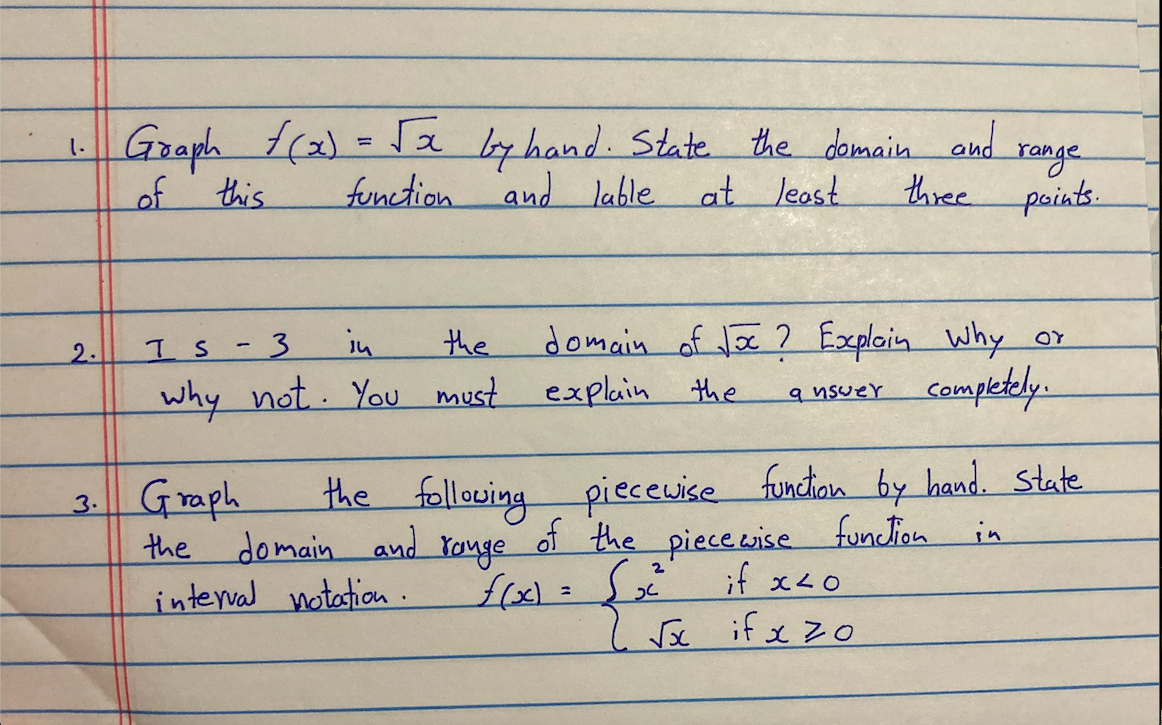 1. Graph f(x) = √x by hand. State the domain and range
of this function and lable at least three points.
2. Is -3 in the domain of √x ? Explain Why or
why not. You must explain the answer completely.
3. Graph the following piecewise function by hand. State
the domain and range of the piecewise function in
interval notation. f(x) = { x² if x<0
√x if x ≥ 0